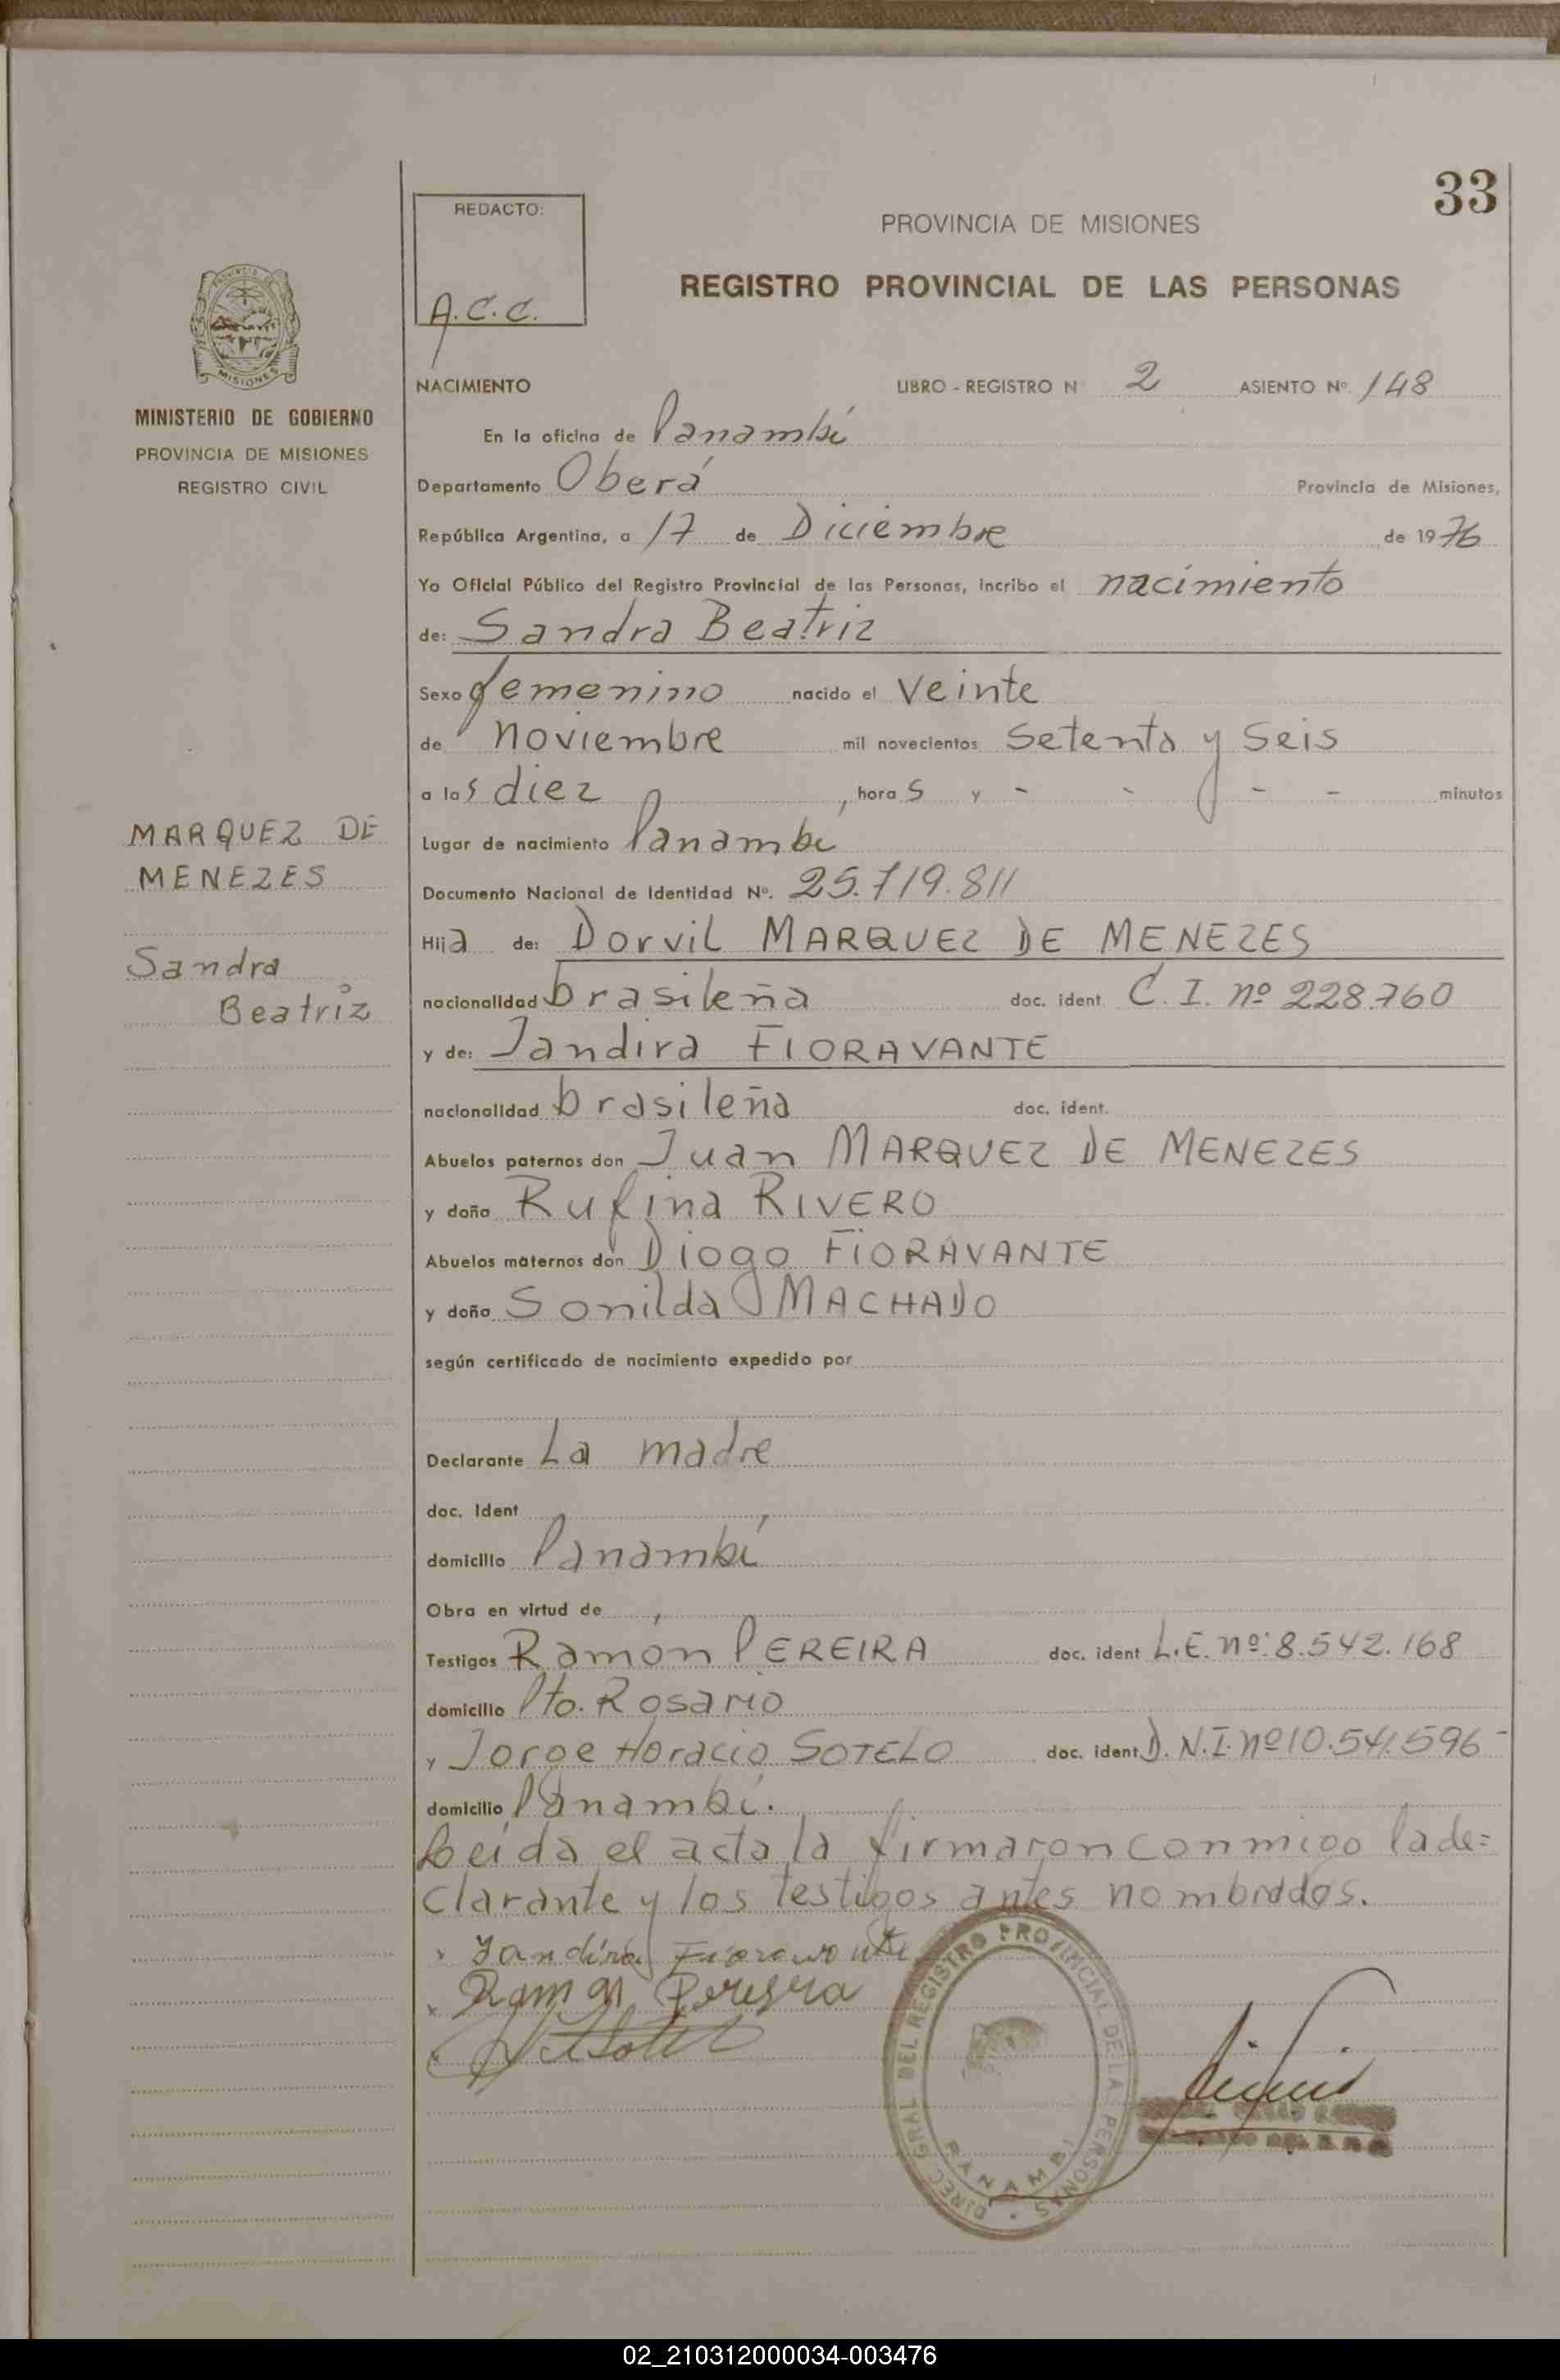 33
REDACTO:
A.C.C.
PROVINCIA DE MISIONES
REGISTRO PROVINCIAL DE LAS PERSONAS
PROVINCIA DE
MISIONES
MINISTERIO DE GOBIERNO
PROVINCIA DE MISIONES
REGISTRO CIVIL
NACIMIENTO LIBRO - REGISTRO N 2 ASIENTO Nº 148
En la oficina de Panambí
Departamento Oberá Provincia de Misiones,
República Argentina, a 17 de Diciembre de 1976
Yo Oficial Público del Registro Provincial de las Personas, incribo el nacimiento
de: Sandra Beatriz
Sexo femenino nacido el veinte
de noviembre mil novecientos setenta y seis
a las diez , horas y - - - - minutos
MARQUEZ DE
MENEZES
Sandra
Beatriz
Lugar de nacimiento Panambí
Documento Nacional de Identidad Nº. 25.719.811
Hija de: Dorvil MARQUEZ DE MENEZES
nacionalidad brasileña doc. ident. C.I. nº 228.760
y de: Jandira FIORAVANTE
nacionalidad brasileña doc. ident.
Abuelos paternos don Juan MARQUEZ DE MENEZES
y doña Rufina RIVERO
Abuelos maternos don Diogo FIORAVANTE
y doña Sonilda MACHADO
según certificado de nacimiento expedido por
Declarante La madre
doc. Ident
domicilio Panambí
Obra en virtud de
Testigos Ramón PEREIRA doc. ident L.E. nº: 8.542.168
domicilio Pto. Rosario
y Jorge Horacio SOTELO doc. ident D.N.I. nº 10.541.596-
domicilio Panambí.
Leída el acta la firmaron conmigo la de=
clarante y los testigos antes nombrados.
Jandira Fioravante
Ramon Pereyra
DIREC. GRAL DEL REGISTRO PROVINCIAL DE LA PERSONAS
PANAMBI
02_210312000034-003476